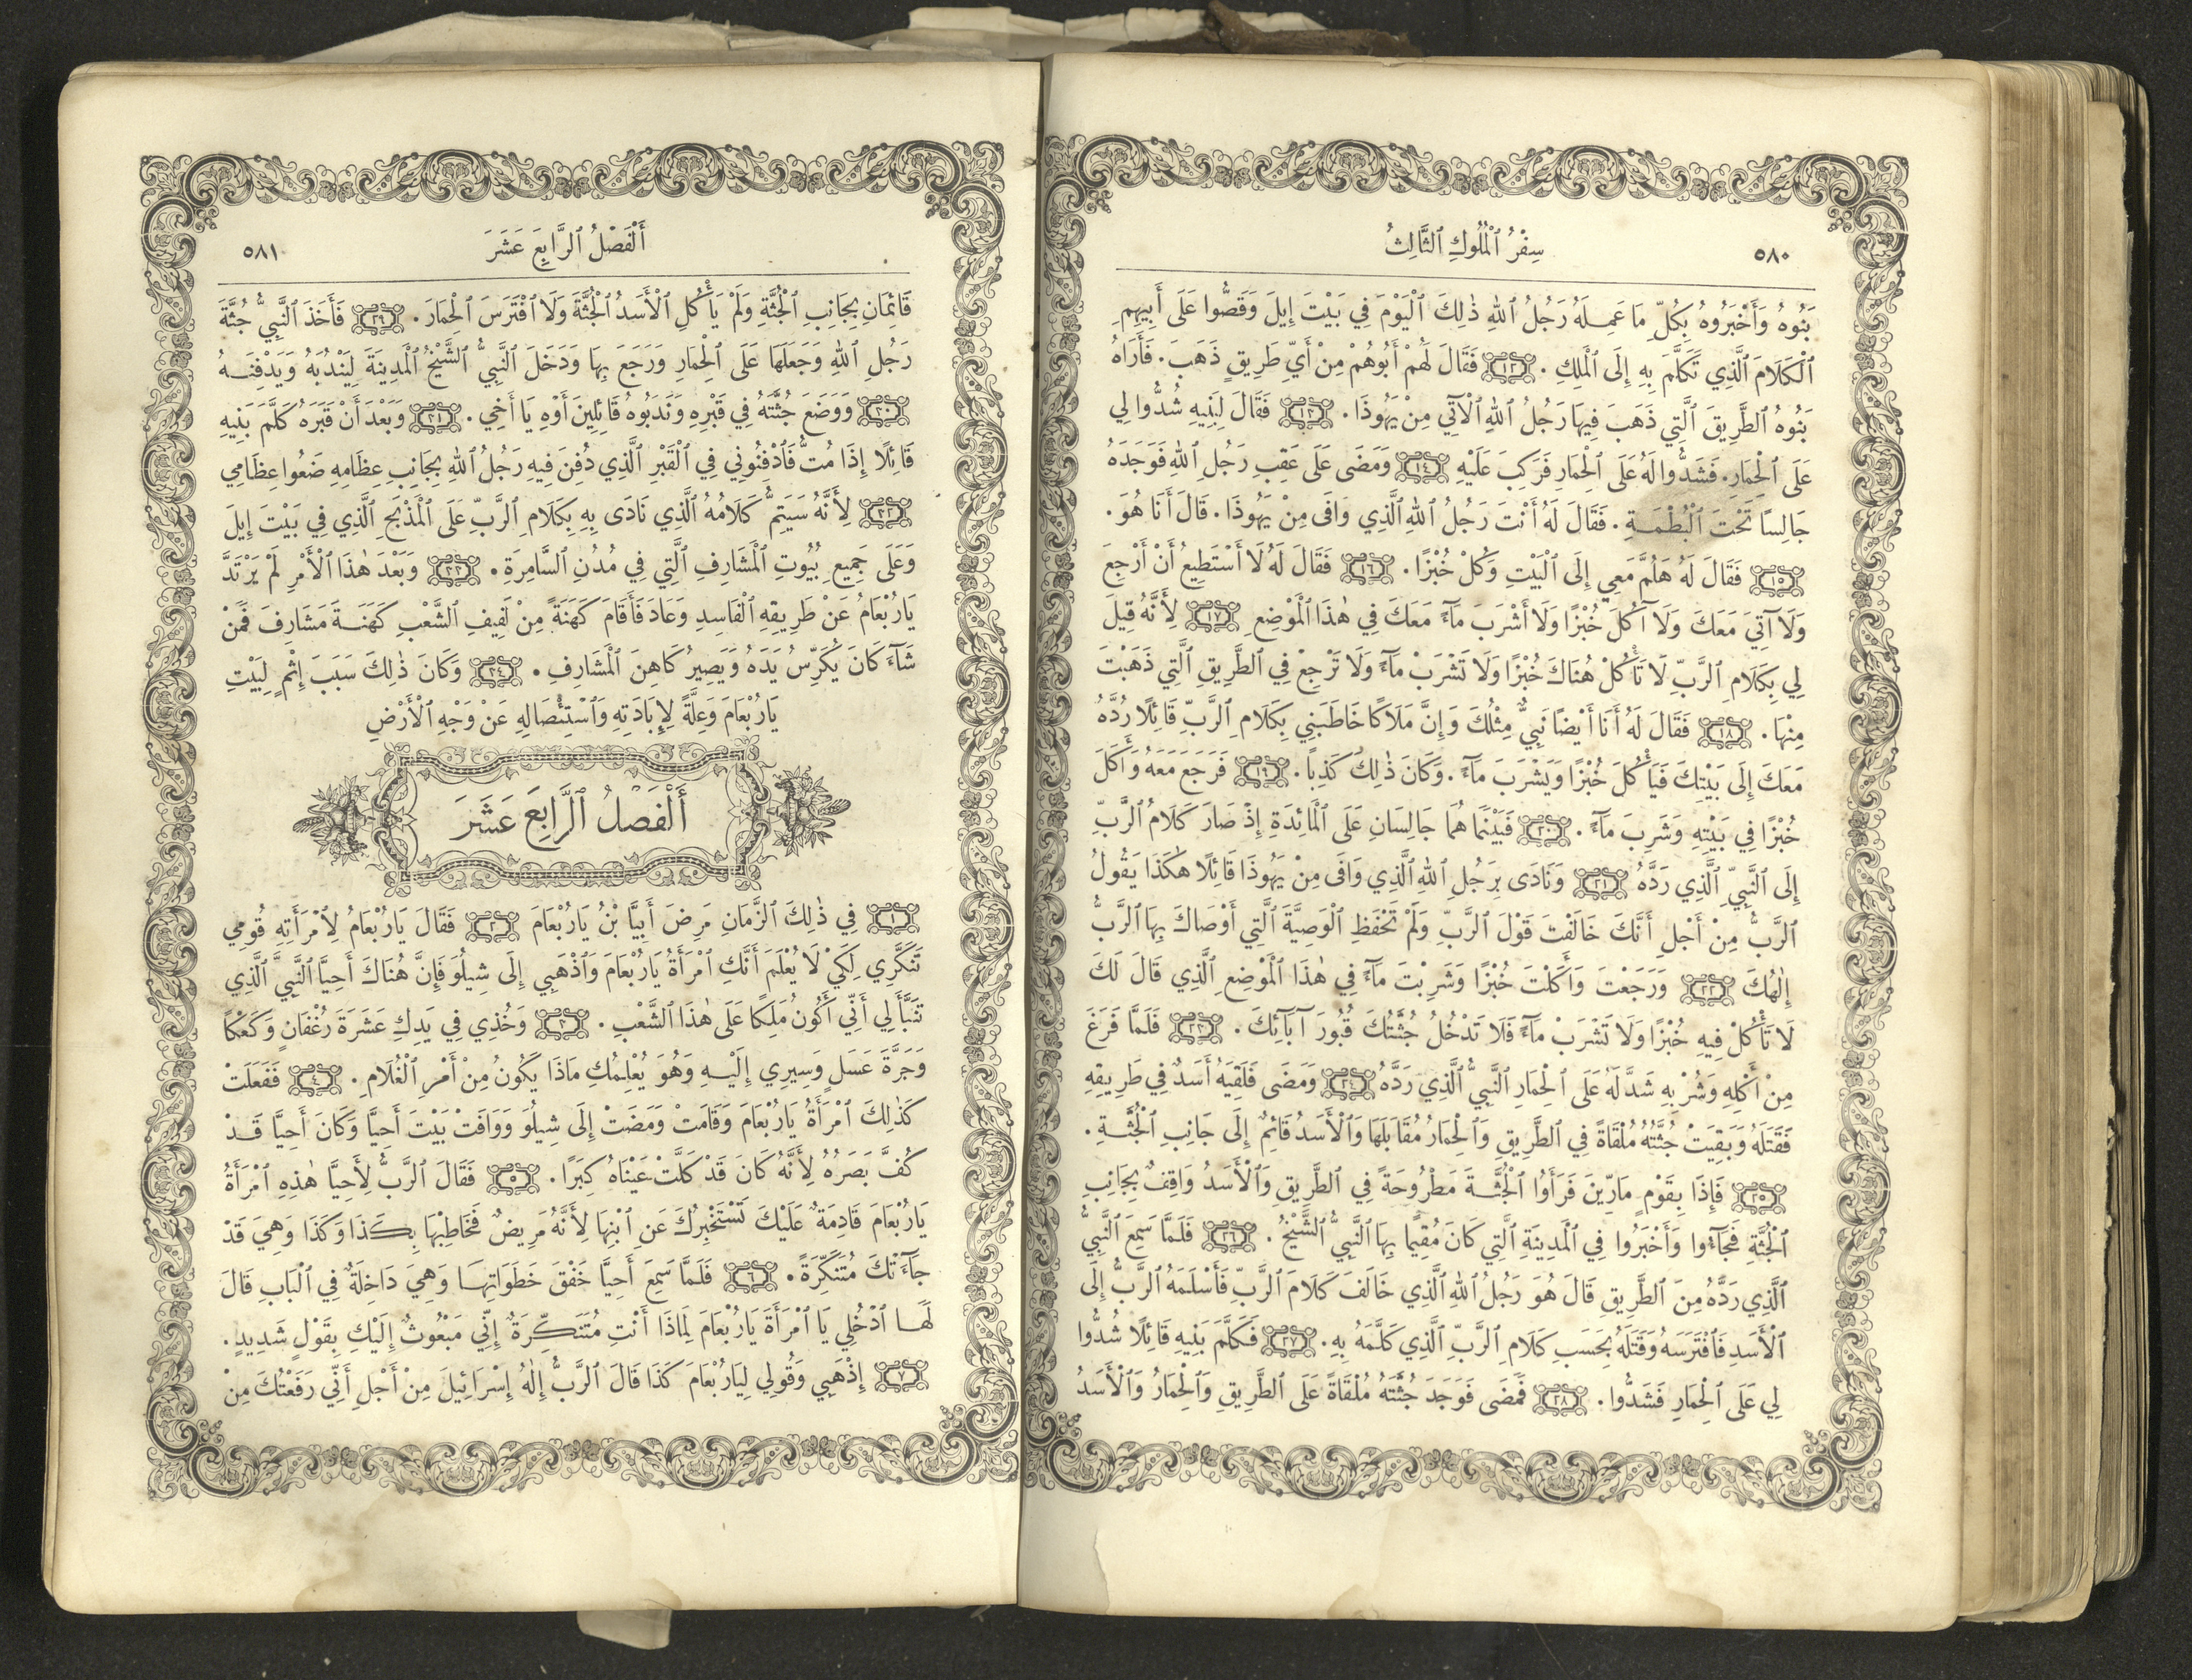 ٥٨٠
سِفْرُ ٱلْمُلُوكِ ٱلثَّالِثُ
بَنُوهُ وَأَخْبَرُوهُ بِكُلِّ مَا عَمِلَهُ رَجُلُ ٱللهِ ذٰلِكَ ٱلْيَوْمَ فِي بَيْتَ إِيلَ وَقَصُّوا عَلَى أَبِيهِمِ
ٱلْكَلَامَ ٱلَّذِي تَكَلَّمَ بِهِ إِلَى ٱلْمَلِكِ . ١٢ فَقَالَ لَهُمْ أَبُوهُمْ مِنْ أَيِّ طَرِيقٍ ذَهَبَ . فَأَرَاهُ
بَنُوهُ ٱلطَّرِيقَ ٱلَّتِي ذَهَبَ فِيهَا رَجُلُ ٱللهِ ٱلْآتِي مِنْ يَهُوذَا . ١٣ فَقَالَ لِبَنِيهِ شُدُّوا لِي
عَلَى ٱلْحِمَارِ . فَشَدُّوا لَهُ عَلَى ٱلْحِمَارِ فَرَكِبَ عَلَيْهِ ١٤ وَمَضَى عَلَى عَقِبِ رَجُلِ ٱللهِ فَوَجَدَهُ
جَالِسًا تَحْتَ ٱلْبُطْمَةِ . فَقَالَ لَهُ أَنْتَ رَجُلُ ٱللهِ ٱلَّذِي وَافَى مِنْ يَهُوذَا . قَالَ أَنَا هُوَ .
١٥ فَقَالَ لَهُ هَلُمَّ مَعِي إِلَى ٱلْبَيْتِ وَكُلْ خُبْزًا . ١٦ فَقَالَ لَهُ لَا أَسْتَطِيعُ أَنْ أَرْجِعَ
وَلَا آتِيَ مَعَكَ وَلَا آكُلَ خُبْزًا وَلَا أَشْرَبَ مَآءً مَعَكَ فِي هٰذَا ٱلْمَوْضِعِ ١٧ لِأَنَّهُ قِيلَ
لِي بِكَلَامِ ٱلرَّبِّ لَا تَأْكُلْ هُنَاكَ خُبْزًا وَلَا تَشْرَبْ مَآءً وَلَا تَرْجِعْ فِي ٱلطَّرِيقِ ٱلَّتِي ذَهَبْتَ
مِنْهَا . ١٨ فَقَالَ لَهُ أَنَا أَيْضًا نَبِيٌّ مِثْلُكَ وَإِنَّ مَلَاكًا خَاطَبَنِي بِكَلَامِ ٱلرَّبِّ قَائِلًا رُدَّهُ
مَعَكَ إِلَى بَيْتِكَ فَيَأْكُلَ خُبْزًا وَيَشْرَبَ مَآءً . وَكَانَ ذٰلِكَ كَذِبًا . ١٩ فَرَجَعَ مَعَهُ وَأَكَلَ
خُبْزًا فِي بَيْتِهِ وَشَرِبَ مَآءً . ٢٠ فَبَيْنَمَا هُمَا جَالِسَانِ عَلَى ٱلْمَائِدَةِ إِذْ صَارَ كَلَامُ ٱلرَّبِّ
إِلَى ٱلنَّبِيِّ ٱلَّذِي رَدَّهُ ٢١ وَنَادَى بِرَجُلِ ٱللهِ ٱلَّذِي وَافَى مِنْ يَهُوذَا قَائِلًا هٰكَذَا يَقُولُ
ٱلرَّبُّ مِنْ أَجْلِ أَنَّكَ خَالَفْتَ قَوْلَ ٱلرَّبِّ وَلَمْ تَحْفَظِ ٱلْوَصِيَّةَ ٱلَّتِي أَوْصَاكَ بِهَا ٱلرَّبُّ
إِلٰهُكَ ٢٢ وَرَجَعْتَ وَأَكَلْتَ خُبْزًا وَشَرِبْتَ مَآءً فِي هٰذَا ٱلْمَوْضِعِ ٱلَّذِي قَالَ لَكَ
لَا تَأْكُلْ فِيهِ خُبْزًا وَلَا تَشْرَبْ مَآءً فَلَا تَدْخُلُ جُثَّتُكَ قُبُورَ آبَآئِكَ . ٢٣ فَلَمَّا فَرَغَ
مِنْ أَكْلِهِ وَشُرْبِهِ شَدَّ لَهُ عَلَى ٱلْحِمَارِ ٱلنَّبِيُّ ٱلَّذِي رَدَّهُ ٢٤ وَمَضَى فَلَقِيَهُ أَسَدٌ فِي طَرِيقِهِ
فَقَتَلَهُ وَبَقِيَتْ جُثَّتُهُ مُلْقَاةً فِي ٱلطَّرِيقِ وَٱلْحِمَارُ مُقَابَلَهَا وَٱلْأَسَدُ قَائِمٌ إِلَى جَانِبِ ٱلْجُثَّةِ .
٢٥ فَإِذَا بِقَوْمٍ مَارِّينَ فَرَأَوُا ٱلْجُثَّةَ مَطْرُوحَةً فِي ٱلطَّرِيقِ وَٱلْأَسَدُ وَاقِفٌ بِجَانِبِ
ٱلْجُثَّةِ فَجَآءُوا وَأَخْبَرُوا فِي ٱلْمَدِينَةِ ٱلَّتِي كَانَ مُقِيمًا بِهَا ٱلنَّبِيُّ ٱلشَّيْخُ . ٢٦ فَلَمَّا سَمِعَ ٱلنَّبِيُّ
ٱلَّذِي رَدَّهُ مِنَ ٱلطَّرِيقِ قَالَ هُوَ رَجُلُ ٱللهِ ٱلَّذِي خَالَفَ كَلَامَ ٱلرَّبِّ فَأَسْلَمَهُ ٱلرَّبُّ إِلَى
ٱلْأَسَدِ فَٱفْتَرَسَهُ وَقَتَلَهُ بِحَسَبِ كَلَامِ ٱلرَّبِّ ٱلَّذِي كَلَّمَهُ بِهِ . ٢٧ فَكَلَّمَ بَنِيهِ قَائِلًا شُدُّوا
لِي عَلَى ٱلْحِمَارِ فَشَدُّوا . ٢٨ فَمَضَى فَوَجَدَ جُثَّتَهُ مُلْقَاةً عَلَى ٱلطَّرِيقِ وَٱلْحِمَارُ وَٱلْأَسَدُ
أَلْفَصْلُ ٱلرَّابِعَ عَشَرَ
٥٨١
قَائِمَانِ بِجَانِبِ ٱلْجُثَّةِ وَلَمْ يَأْكُلِ ٱلْأَسَدُ ٱلْجُثَّةَ وَلَا ٱفْتَرَسَ ٱلْحِمَارَ . ٢٩ فَأَخَذَ ٱلنَّبِيُّ جُثَّةَ
رَجُلِ ٱللهِ وَجَعَلَهَا عَلَى ٱلْحِمَارِ وَرَجَعَ بِهَا وَدَخَلَ ٱلنَّبِيُّ ٱلشَّيْخُ ٱلْمَدِينَةَ لِيَنْدُبَهُ وَيَدْفِنَهُ
٣٠ وَوَضَعَ جُثَّتَهُ فِي قَبْرِهِ وَنَدَبُوهُ قَائِلِينَ أَوْهِ يَا أَخِي . ٣١ وَبَعْدَ أَنْ قَبَرَهُ كَلَّمَ بَنِيهِ
قَائِلًا إِذَا مُتُّ فَٱدْفِنُونِي فِي ٱلْقَبْرِ ٱلَّذِي دُفِنَ فِيهِ رَجُلُ ٱللهِ بِجَانِبِ عِظَامِهِ ضَعُوا عِظَامِي
٣٢ لِأَنَّهُ سَيَتِمُّ كَلَامُهُ ٱلَّذِي نَادَى بِهِ بِكَلَامِ ٱلرَّبِّ عَلَى ٱلْمَذْبَحِ ٱلَّذِي فِي بَيْتَ إِيلَ
وَعَلَى جَمِيعِ بُيُوتِ ٱلْمَشَارِفِ ٱلَّتِي فِي مُدُنِ ٱلسَّامِرَةِ . ٣٣ وَبَعْدَ هٰذَا ٱلْأَمْرِ لَمْ يَرْتَدَّ
يَارُبْعَامُ عَنْ طَرِيقِهِ ٱلْفَاسِدِ وَعَادَ فَأَقَامَ كَهَنَةً مِنْ لَفِيفِ ٱلشَّعْبِ كَهَنَةَ مَشَارِفَ فَمَنْ
شَآءَ كَانَ يُكَرِّسُ يَدَهُ وَيَصِيرُ كَاهِنَ ٱلْمَشَارِفِ . ٣٤ وَكَانَ ذٰلِكَ سَبَبَ إِثْمٍ لِبَيْتِ
يَارُبْعَامَ وَعِلَّةً لِإِبَادَتِهِ وَٱسْتِئْصَالِهِ عَنْ وَجْهِ ٱلْأَرْضِ
أَلْفَصْلُ ٱلرَّابِعَ عَشَرَ
١ فِي ذٰلِكَ ٱلزَّمَانِ مَرِضَ أَبِيَّا بْنُ يَارُبْعَامَ ٢ فَقَالَ يَارُبْعَامُ لِٱمْرَأَتِهِ قُومِي
تَنَكَّرِي لِكَيْ لَا يُعْلَمَ أَنَّكِ ٱمْرَأَةُ يَارُبْعَامَ وَٱذْهَبِي إِلَى شِيلُوَ فَإِنَّ هُنَاكَ أَحِيَّا ٱلنَّبِيَّ ٱلَّذِي
تَنَبَّأَ لِي أَنِّي أَكُونُ مَلِكًا عَلَى هٰذَا ٱلشَّعْبِ . ٣ وَخُذِي فِي يَدِكِ عَشَرَةَ رُغْفَانٍ وَكَعْكًا
وَجَرَّةَ عَسَلٍ وَسِيرِي إِلَيْهِ وَهُوَ يُعْلِمُكِ مَاذَا يَكُونُ مِنْ أَمْرِ ٱلْغُلَامِ . ٤ فَفَعَلَتْ
كَذٰلِكَ ٱمْرَأَةُ يَارُبْعَامَ وَقَامَتْ وَمَضَتْ إِلَى شِيلُوَ وَوَافَتْ بَيْتَ أَحِيَّا وَكَانَ أَحِيَّا قَدْ
كُفَّ بَصَرُهُ لِأَنَّهُ كَانَ قَدْ كَلَّتْ عَيْنَاهُ كِبَرًا . ٥ فَقَالَ ٱلرَّبُّ لِأَحِيَّا هٰذِهِ ٱمْرَأَةُ
يَارُبْعَامَ قَادِمَةٌ عَلَيْكَ تَسْتَخْبِرُكَ عَنِ ٱبْنِهَا لِأَنَّهُ مَرِيضٌ فَخَاطِبْهَا بِكَذَا وَكَذَا وَهِيَ قَدْ
جَآءَتْكَ مُتَنَكِّرَةً . ٦ فَلَمَّا سَمِعَ أَحِيَّا خَفْقَ خَطَوَاتِهَا وَهِيَ دَاخِلَةٌ فِي ٱلْبَابِ قَالَ
لَهَا ٱدْخُلِي يَا ٱمْرَأَةَ يَارُبْعَامَ لِمَاذَا أَنْتِ مُتَنَكِّرَةٌ إِنِّي مَبْعُوثٌ إِلَيْكِ بِقَوْلٍ شَدِيدٍ .
٧ إِذْهَبِي وَقُولِي لِيَارُبْعَامَ كَذَا قَالَ ٱلرَّبُّ إِلٰهُ إِسْرَائِيلَ مِنْ أَجْلِ أَنِّي رَفَعْتُكَ مِنْ